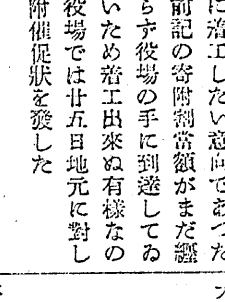 に着工したい意向であつた
前記の寄附割當額がまだ纒
らず役場の手に到達してゐ
いため着工出來ぬ有樣なの
役場では廿五日地元に對し
附催促狀を發した